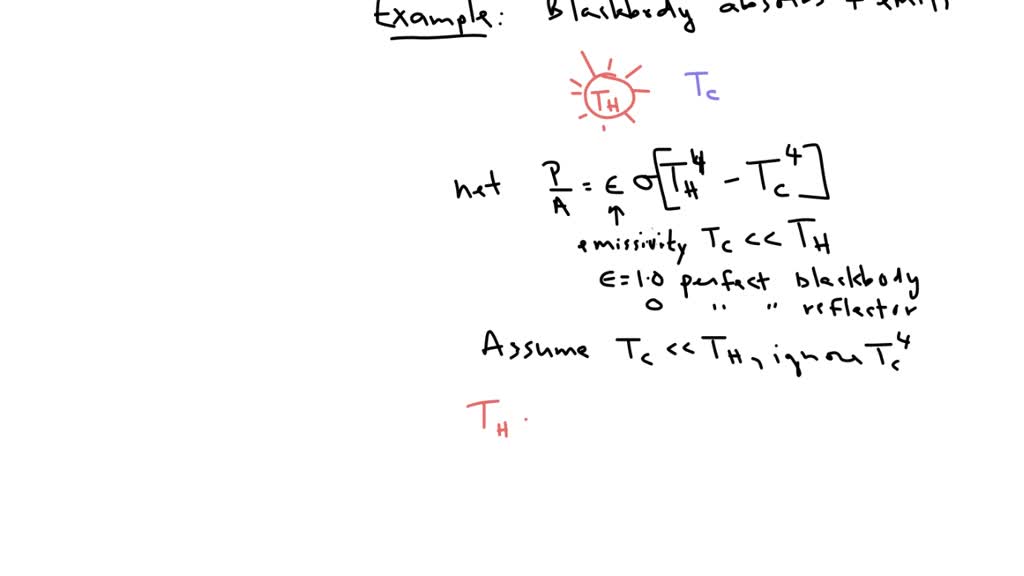 Example: Blackbody absorbs + emits
T_H T_C
net P/A = ϵ σ[T_H^4 - T_C^4]
↑
emissivity T_C << T_H
ϵ = 1.0 perfect blackbody
0 " " reflector
Assume T_C << T_H, ignore T_C^4
T_H